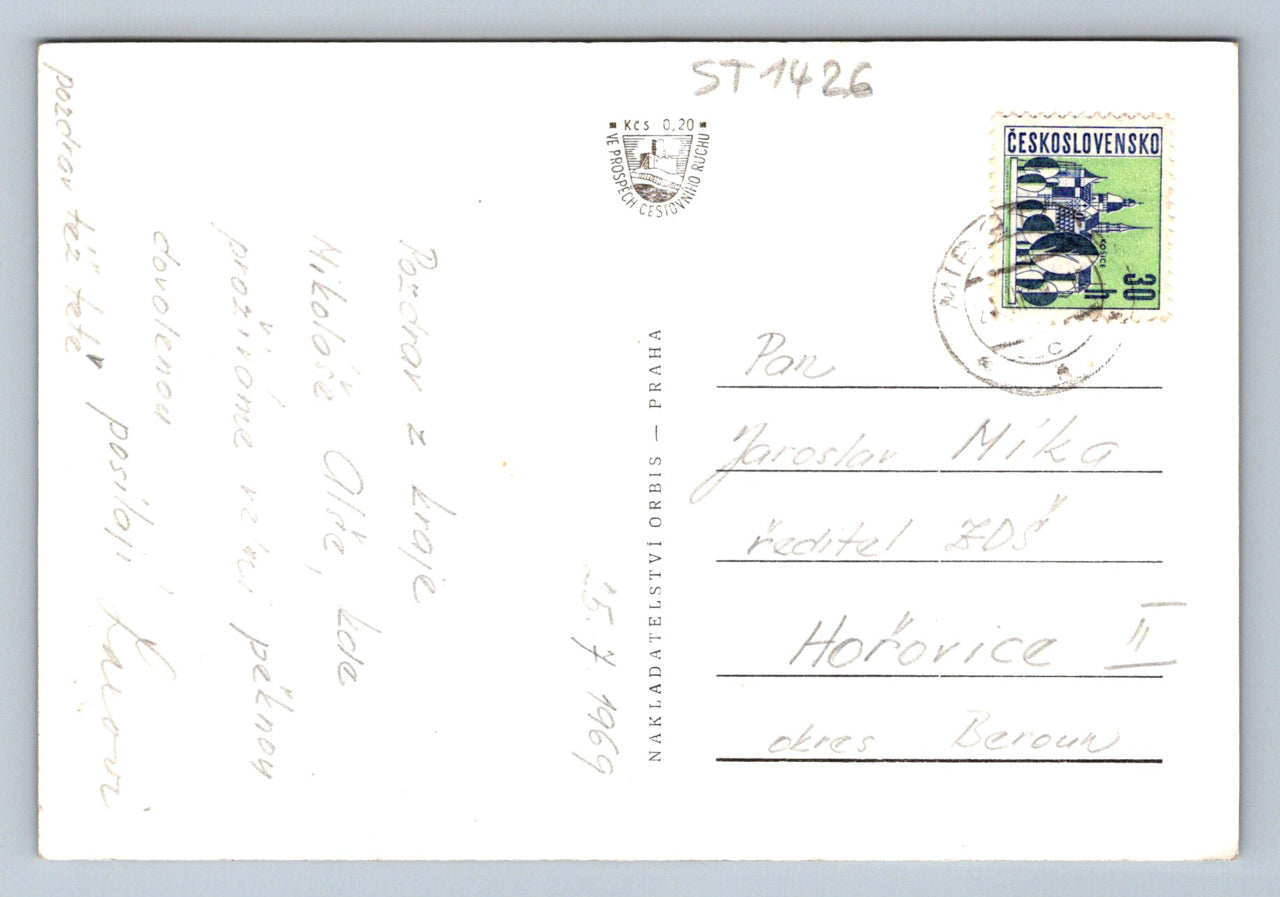 ST1426
Kčs 0,20
VE PROSPĚCH CESTOVNÍHO RUCHU
ČESKOSLOVENSKO
KOŠICE
30 h
25. 7. 1969
Pozdrav z kraje
Mikoláše Alše, kde
prožíváme velmi pěknou
dovolenou
posílají
pozdrav též tetě
NAKLADATELSTVÍ ORBIS — PRAHA
Pan
Jaroslav Míka
ředitel ZDŠ
Hořovice II
okres Beroun